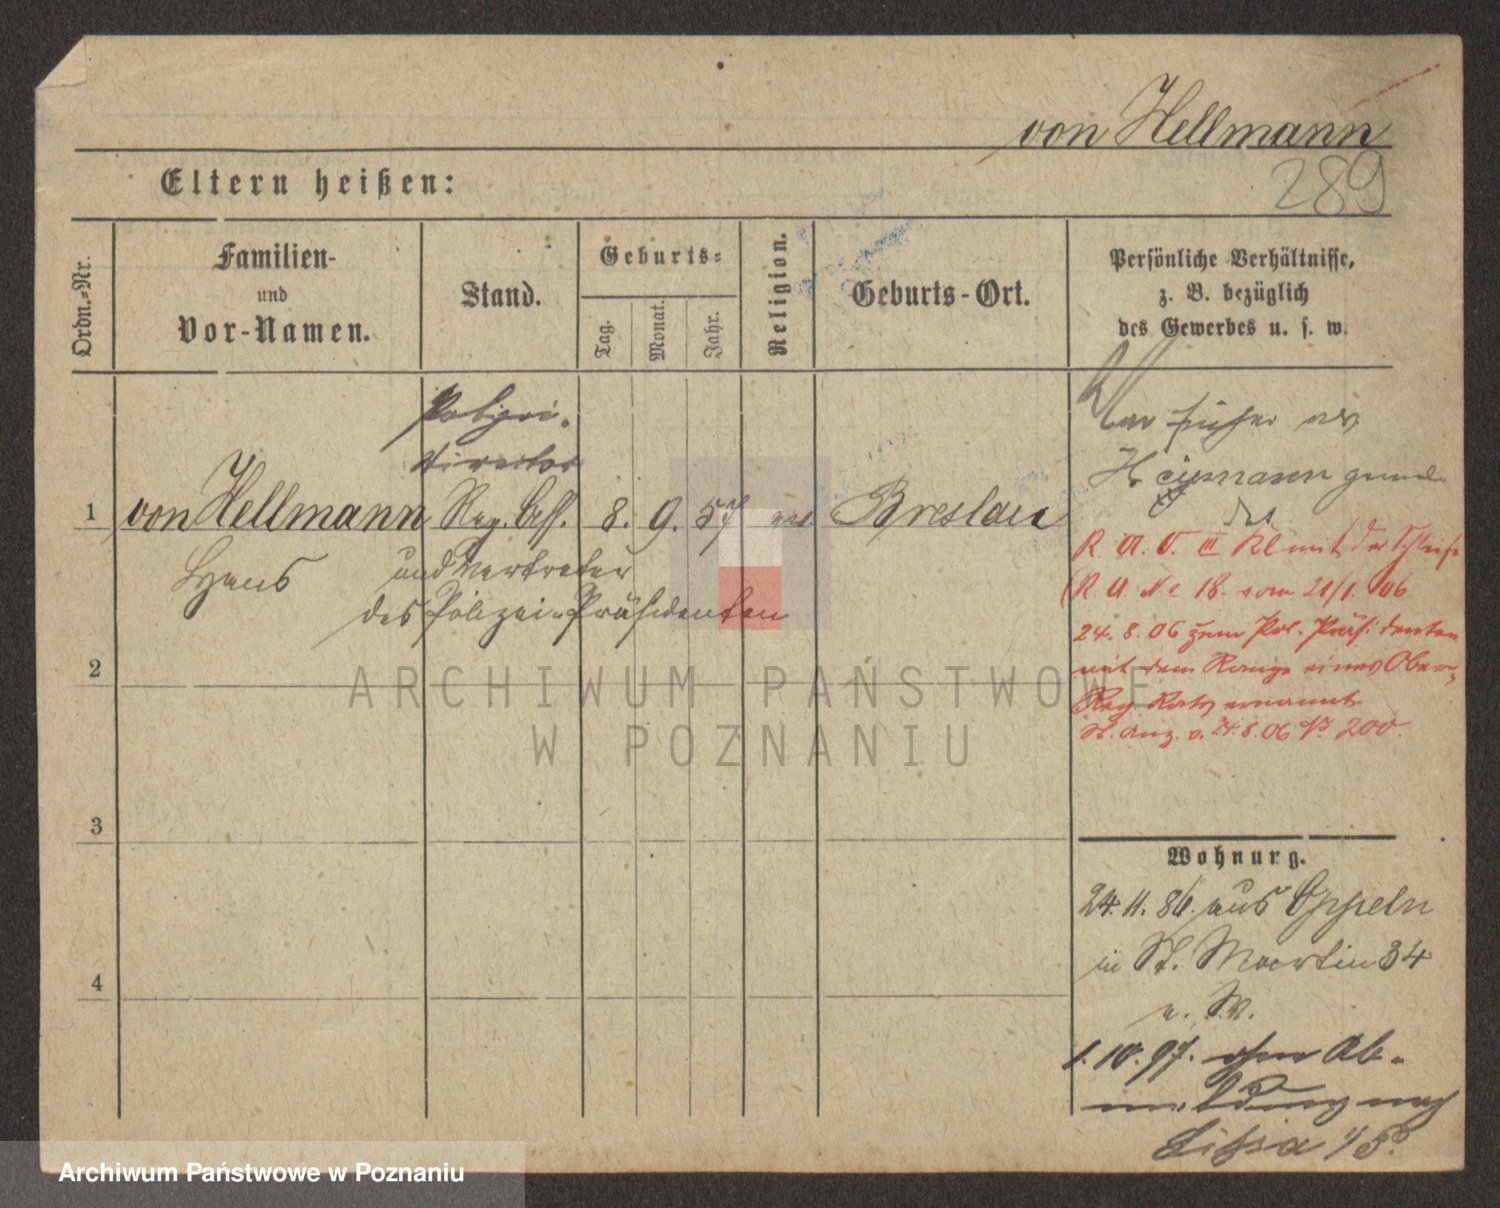 von Hellmann
289
Eltern heißen:
Ordn.-Nr.
Familien-
und
Vor-Namen.
Stand.
Geburts-
Tag.
Monat.
Jahr.
Religion.
Geburts-Ort.
Persönliche Verhältnisse,
z. B. bezüglich
des Gewerbes u. s. w.
Polizei-
director
War früher
Heymann
1
von Hellmann
Reg. Ass.
8. 9. 57
Breslau
Hans
und Vertreter
des Polizei-Präsidenten
R. A. O. III Kl mit der Schleife
(R. A. No 18. vom 21/1. 06
24. 8. 06 zum Pol. Präsidenten
mit dem Range eines Ober-
Reg. Rats ernannt
St. Anz. v. 24.8.06 No 200.
2
3
4
Wohnung.
24. 11. 86. aus Oppeln
in St. Martin 34
1. 10. 97. ohne Ab-
meldung nach
Lissa i/P.
ARCHIWUM PAŃSTWOWE
W POZNANIU
Archiwum Państwowe w Poznaniu